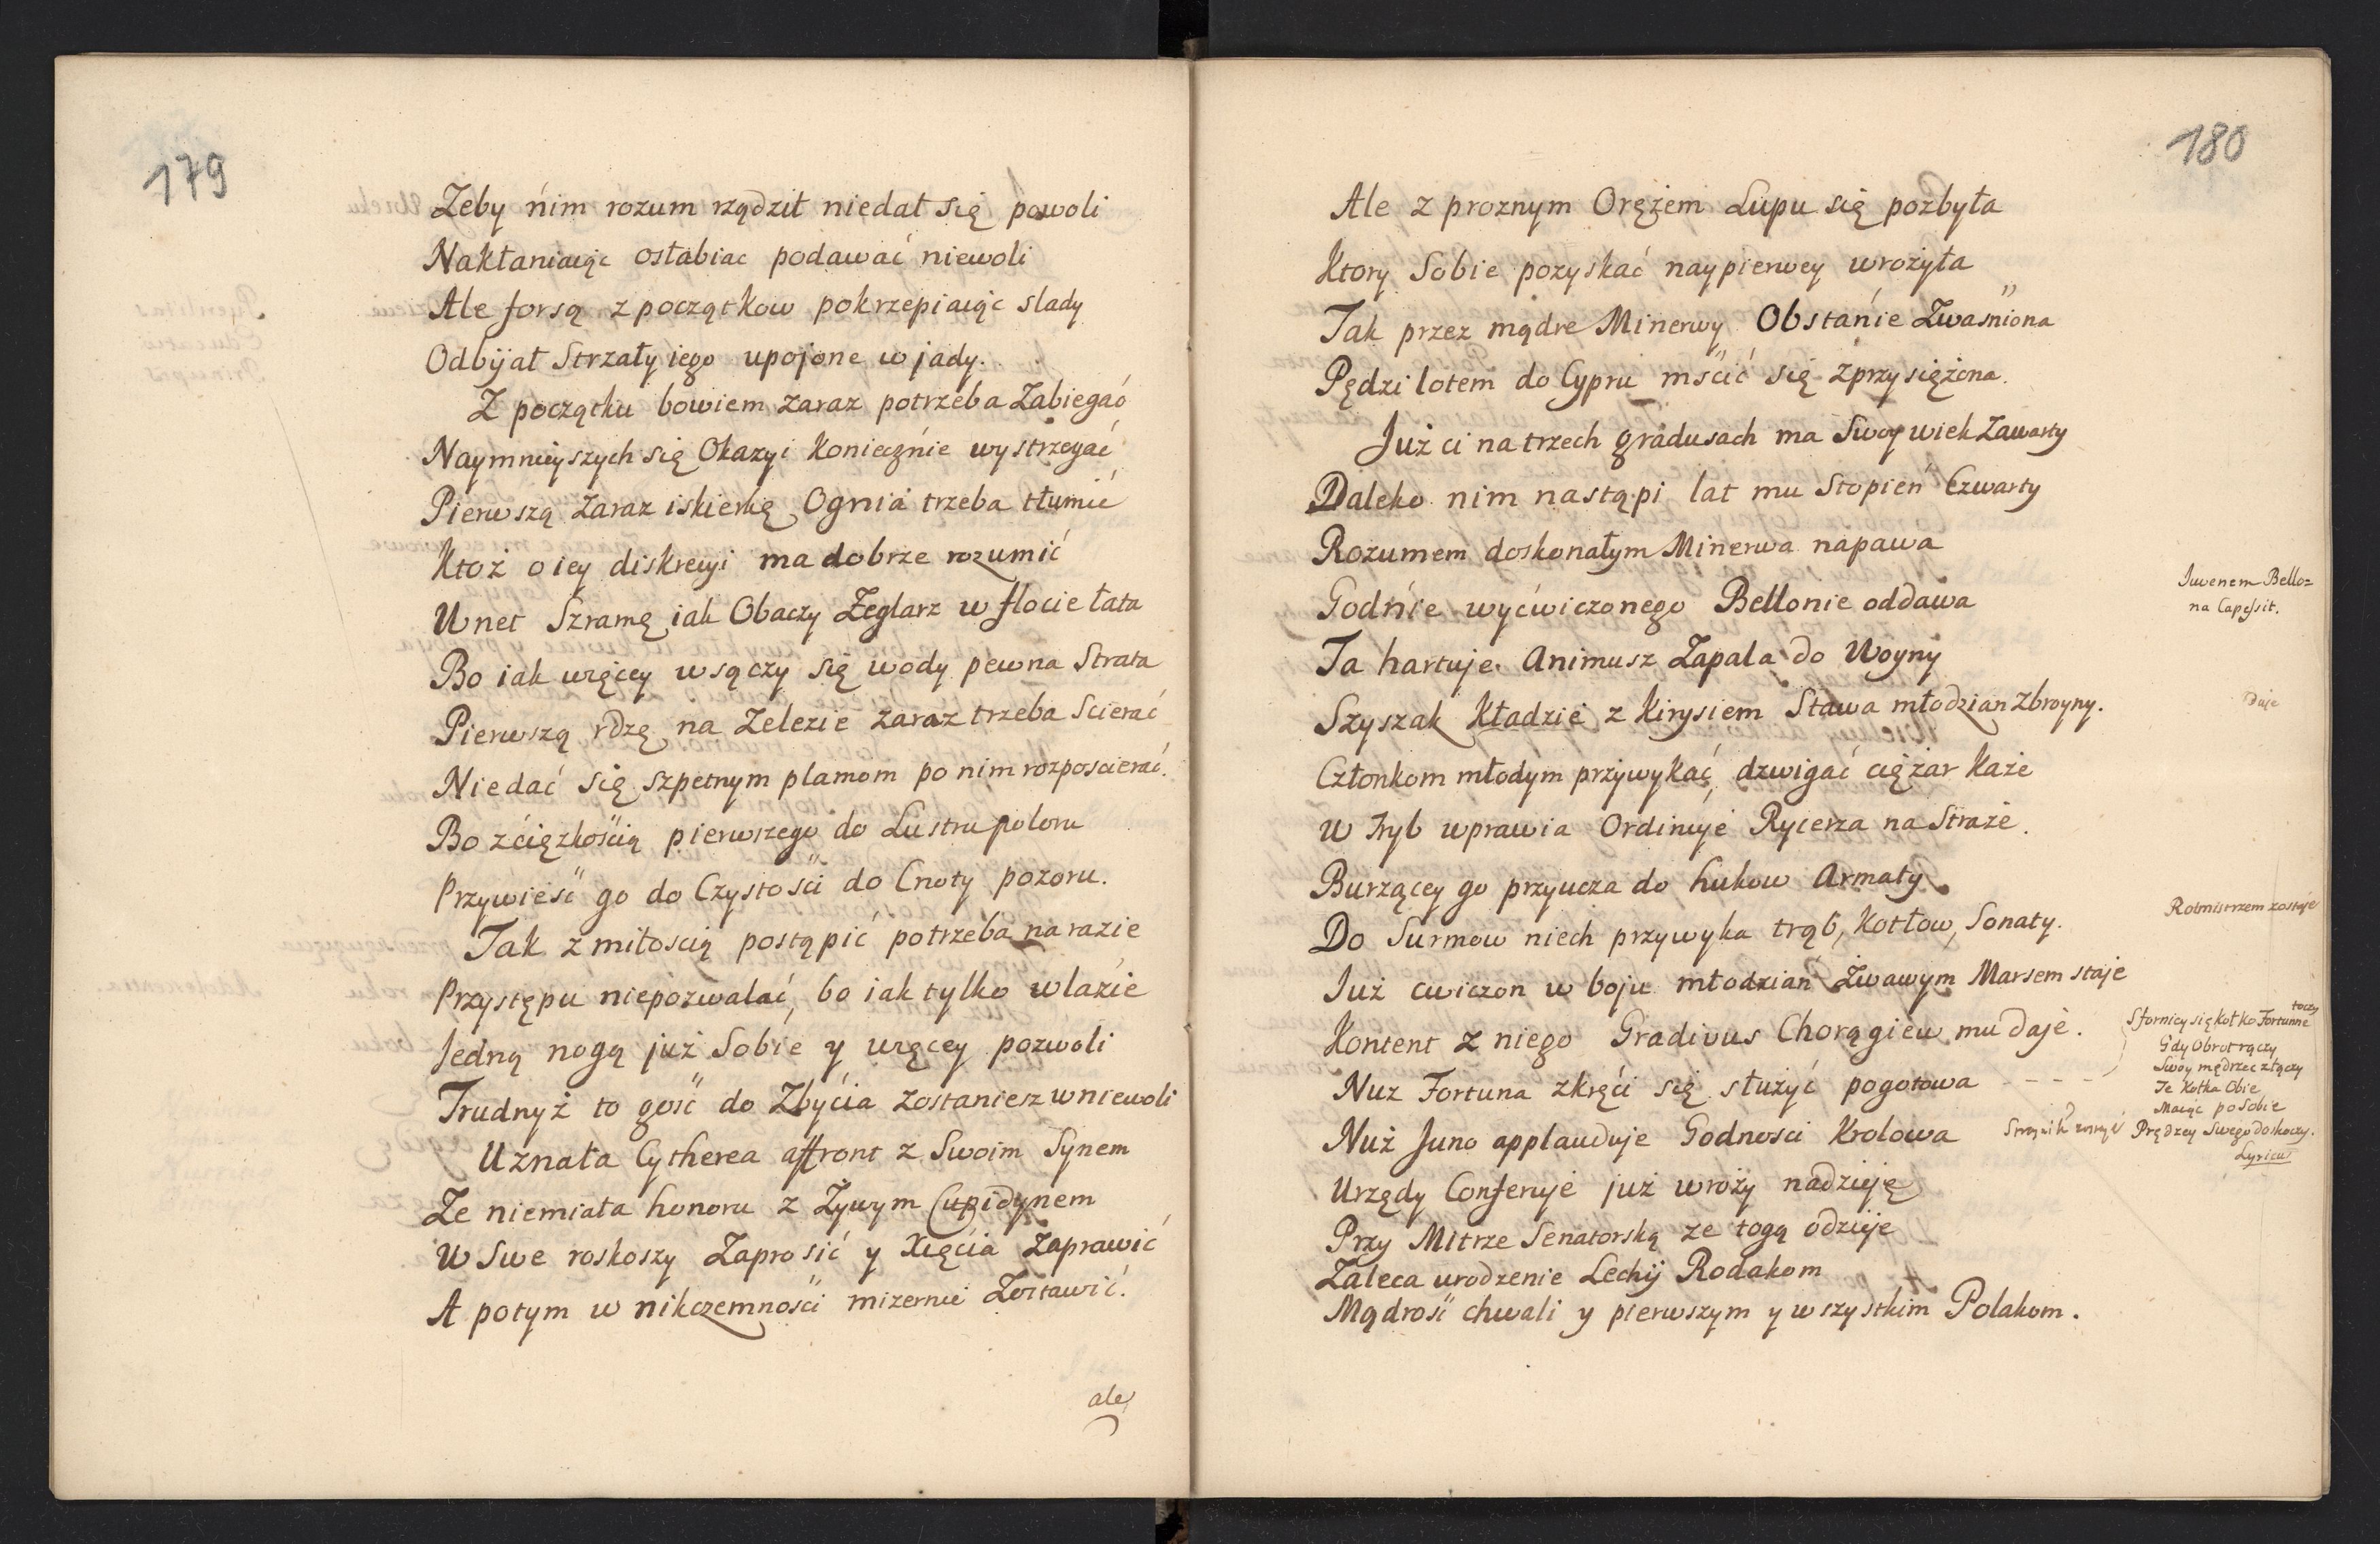 179
Zeby nim rozum rządził niedał się powoli
Nakłaniaiąc osłabiac podawać niewoli
Ale forsą z początkow pokrzepiaiąc slady
Odbijał Strzały iego upojone w jady.
Z początku bowiem zaraz potrzeba Zabiegać
Naymnieyszych się Okazyi koniecznie wystrzegać
Pierwszą zaraz iskierkę Ognia trzeba tłumić
Ktoż o iey diskrecyi ma dobrze rozumić
Wnet Szramę iak Obaczy Żeglarz w flocie łata
Bo iak więcey wsączy się wody pewna Strata
Pierwszą rdzę na Zelezie zaraz trzeba Scierać
Niedać się szpetnym plamom po nim rozposcierać.
Bo z ciężkością pierwszego do Lustru poloru
Przywieść go do Czystości do Cnoty pozoru.
Tak z miłoscią postąpić potrzeba na razie
Przystępu niepozwalać, bo iak tylko wlazie
Jedną nogą już Sobie y więcey pozwoli
Trudnyż to gość do Zbycia zostaniesz w niewoli
Uznała Cytherea affront z Swoim Synem
Ze niemiała honoru z Żywym Cupidynem
W Swe roskoszy Zaprosić y Xięcia Zaprawić
A potym w nikczemności mizernie Zostawić.
ale
180
Ale z proznym Orężem Łupu się pozbyła
Ktory Sobie pozyskać naypierwey wrożyła
Tak przez mądre Minerwy Obstanie Zwaśniona
Pędzi lotem do Cypru mścić się zprzysiężona.
Już ci na trzech gradusach ma Swoy wiek Zawarty
Daleko nim nastąpi lat mu Stopień Czwarty
Rozumem doskonałym Minerwa napawa
Godnie wyćwiczonego Bellonie oddawa
Juvenem Bello=
na Capessit.
Ta hartuje Animusz Zapala do Woyny
Szyszak Kładzie z Kirysiem Stawa młodzian Zbroyny.
Daje
Członkom młodym przywykać, dzwigać ciężar każe
W Tryb wprawia Ordinuje Rycerza na Straże.
Burzącey go przyucza do hukow Armaty
Do Surmow niech przywyka trąb, Kotłow, Sonaty.
Rotmistrzem zostaje
Już cwiczon w boju młodzian Żwawym Marsem staje
Kontent z niego Gradivus Chorągiew mu daje.
Nuż Fortuna zkręci się służyć pogotowa
Sfornicy się kołko Fortunne
toczy
Gdy Obrot rączy
Swoy mędrzec złączy
Te Kołka Obie
Maiąc po Sobie
Prędzey Swego doskoczy.
Lyricus
Nuż Juno applauduje Godnosci Krolowa
Urzędy Conferuje już wroży nadzieję
Przy Mitrze Senatorską ze togą odzieje
Zaleca urodzenie Lechij Rodakom
Mądrość chwali y pierwszym y wszystkim Polakom.